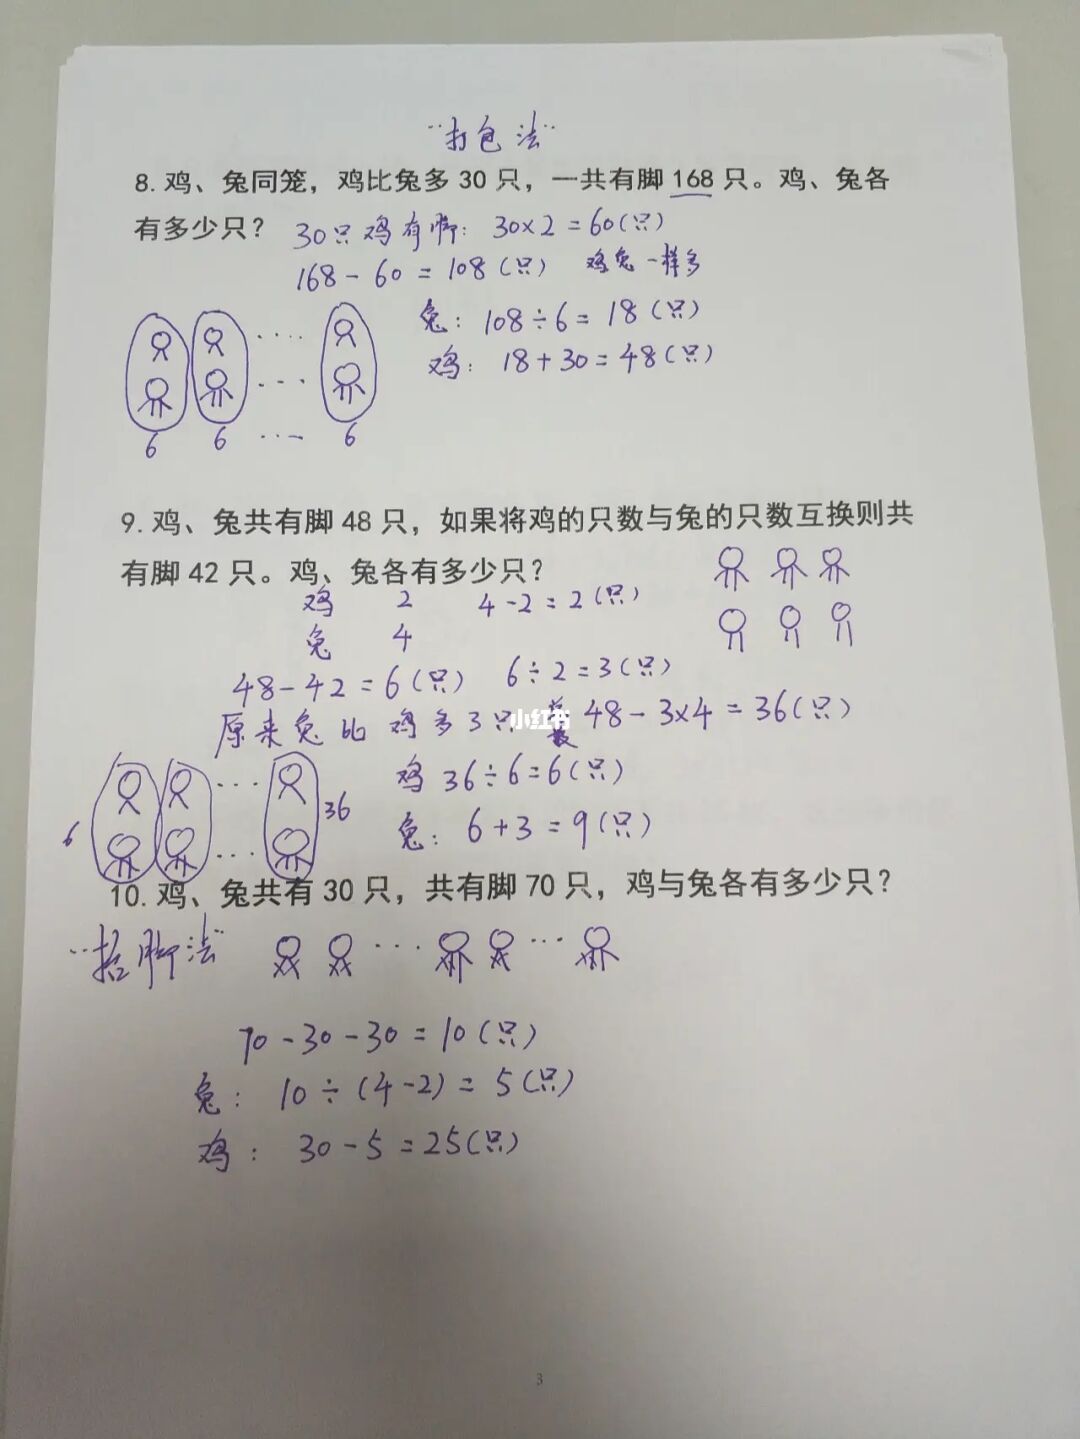 "打包法"
8. 鸡、兔同笼，鸡比兔多 30 只，一共有脚 168 只。鸡、兔各
有多少只？
30只鸡有脚：30×2=60(只)
168-60=108(只) 鸡兔一样多
兔：108÷6=18(只)
鸡：18+30=48(只)
6 6 ··· 6
9. 鸡、兔共有脚 48 只，如果将鸡的只数与兔的只数互换则共
有脚 42 只。鸡、兔各有多少只？
鸡 2 4-2=2(只)
兔 4
48-42=6(只) 6÷2=3(只)
原来兔比鸡多3只 48-3×4=36(只)
小红书
鸡 36÷6=6(只)
6 36
兔：6+3=9(只)
10. 鸡、兔共有 30 只，共有脚 70 只，鸡与兔各有多少只？
"抬脚法"
70-30-30=10(只)
兔：10÷(4-2)=5(只)
鸡：30-5=25(只)
3